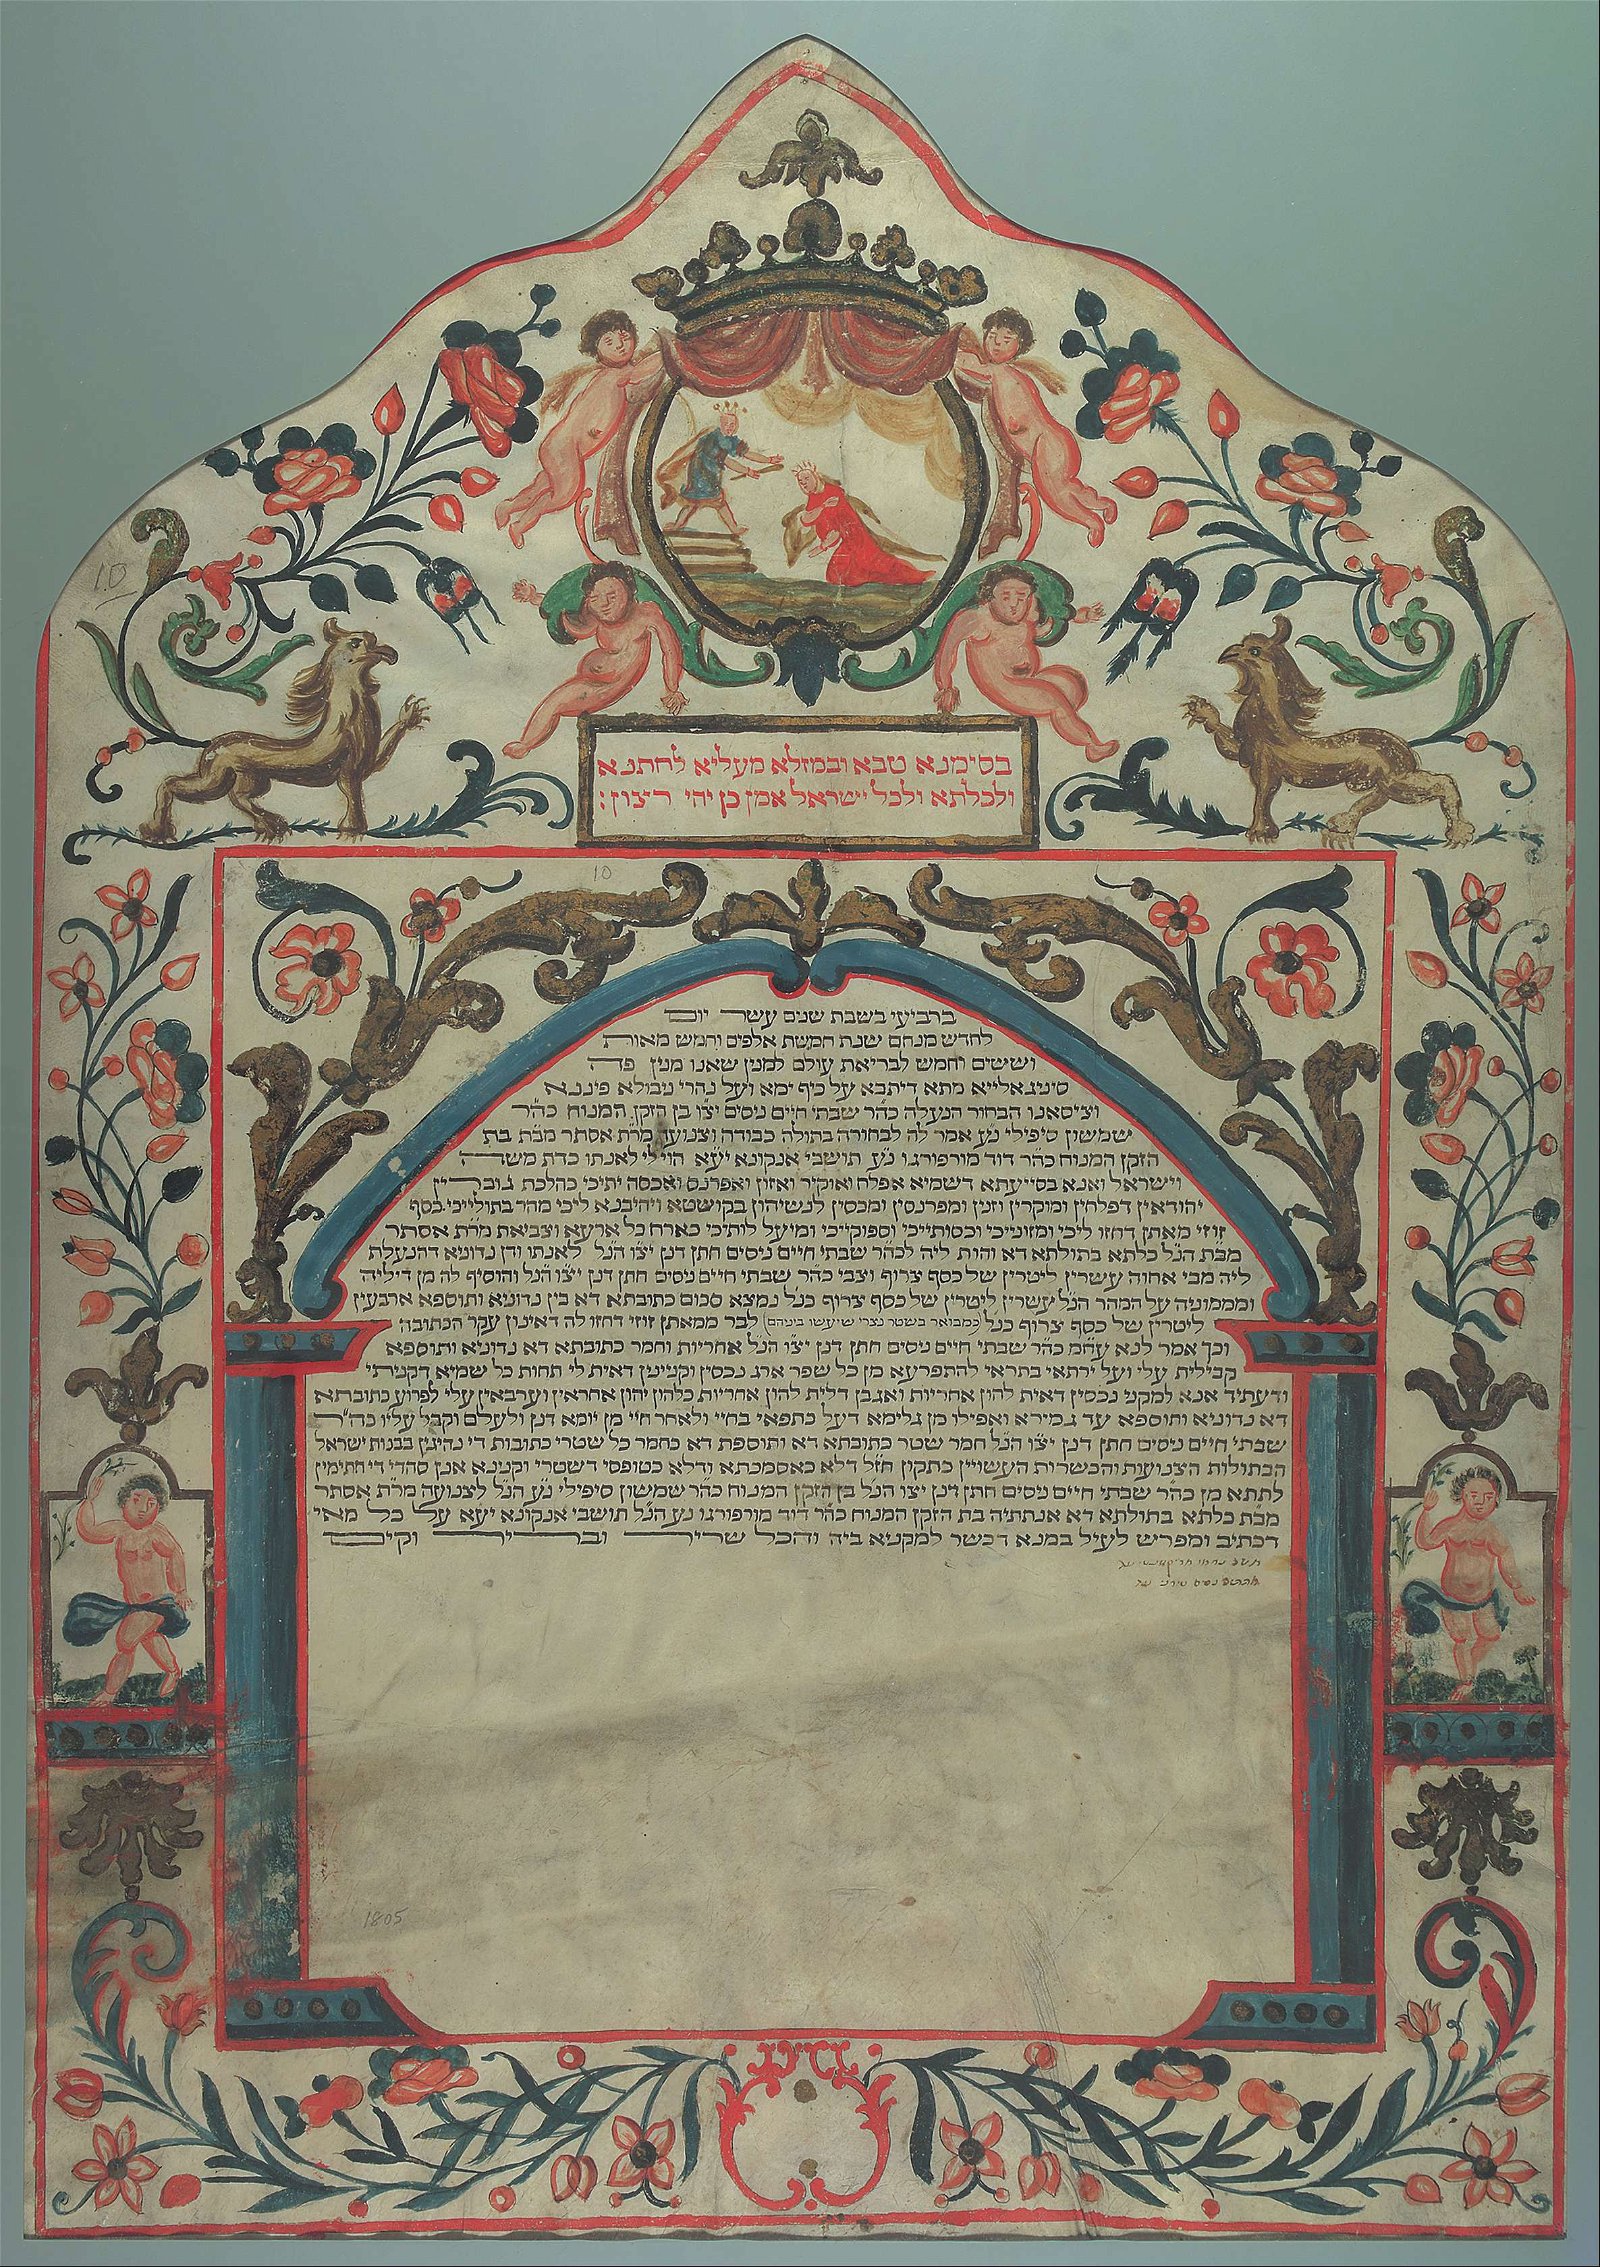 10
בסימנא טבא ובמזלא מעליא לחתנא
ולכלתא ולכל ישראל אמן כן יהי רצון:
10
ברביעי בשבת שנים עשר יום
לחדש מנחם שנת חמשת אלפים וחמש מאות
וששים וחמש לבריאת עולם למנין שאנו מנין פה
סיניגאלייא מתא דיתבא על כיף ימא ועל נהרי ניבולא פיננא
וציסאנו הבחור הנעלה כה״ר שבתי חיים ניסים יצ״ו בן הזקן המנוח כה״ר
שמשון סיפילי נ״ע אמר לה לבחורה בתולה כבודה וצנועה מרת אסתר מב״ת בת
הזקן המנוח כה״ר דוד מורפורגו נ״ע תושבי אנקונא יע״א הוי לי לאנתו כדת משה
וישראל ואנא בסייעתא דשמיא אפלח ואוקיר ואזון ואפרנס ואכסה יתיכי כהלכת גוברין
יהודאין דפלחין ומוקרין וזנין ומפרנסין ומכסין לנשיהון בקושטא ויהיבנא ליכי מהר בתולייכי כסף
זוזי מאתן דחזו ליכי ומזונייכי וכסותייכי וספוקייכי ומיעל לותיכי כארח כל ארעא וצביאת מרת אסתר
מב״ת הנ״ל כלתא בתולתא דא והות ליה לכה״ר שבתי חיים ניסים חתן דנן יצ״ו הנ״ל לאנתו ודן נדוניא דהנעלת
ליה מבי אחוה עשרין ליטרין של כסף צרוף וצבי כה״ר שבתי חיים ניסים חתן דנן יצ״ו הנ״ל והוסיף לה מן דיליה
ומממוניה על המהר הנ״ל עשרין ליטרין של כסף צרוף כנ״ל נמצא סכום כתובתא דא בין נדוניא ותוספא ארבעין
ליטרין של כסף צרוף כנ״ל (כמבואר בשטר נצרי שיעשו ביניהם) לבר ממאתן זוזי דחזו לה דאינון עקר הכתובה
וכך אמר לנא ע״חמ כה״ר שבתי חיים ניסים חתן דנן יצ״ו הנ״ל אחריות וחמר כתובתא דא נדוניא ותוספא
קבילית עלי ועל ירתאי בתראי להתפרעא מן כל שפר ארג נכסין וקנינין דאית לי תחות כל שמיא דקניתי
ודעתיד אנא למקני נכסין דאית להון אחריות ואגבן דלית להון אחריות כלהון יהון אחראין וערבאין עלי לפרוע כתובתא
דא נדוניא ותוספא עד גמירא ואפילו מן גלימא דעל כתפאי בחיי ולאחר חיי מן יומא דנן ולעלם וקבל עליו כה״ר
שבתי חיים ניסים חתן דנן יצ״ו הנ״ל חמר שטר כתובתא דא ותוספת דא כחמר כל שטרי כתובות די נהיגין בבנות ישראל
הבתולות הצנועות והכשרות העשויין כתקון חז״ל דלא כאסמכתא ודלא כטופסי דשטרי וקנינא אנן סהדי די חתימין
לתתא מן כה״ר שבתי חיים ניסים חתן דנן יצ״ו הנ״ל בן הזקן המנוח כה״ר שמשון סיפילי נ״ע הנ״ל לצנועה מרת אסתר
מב״ת כלתא בתולתא דא אנתתיה בת הזקן המנוח כה״ר דוד מורפורגו נ״ע הנ״ל תושבי אנקונא יע״א על כל מאי
דכתיב ומפרש לעיל במנא דכשר למקניא ביה והכל שריר ובריר וקים
1805